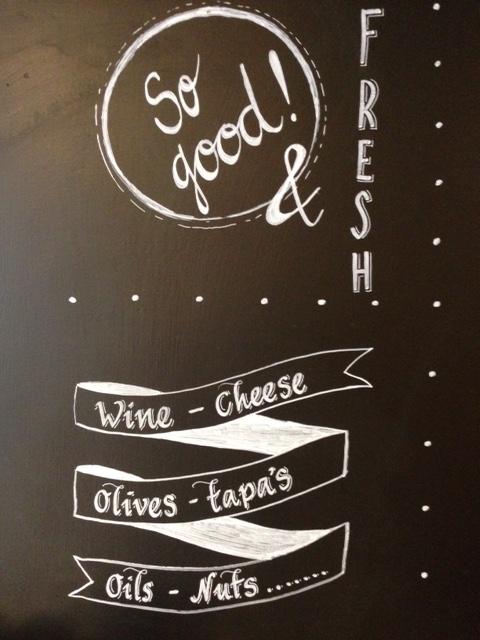 So
good!
&
FRESH
Wine - Cheese
Olives - tapa's
Oils - Nuts ........